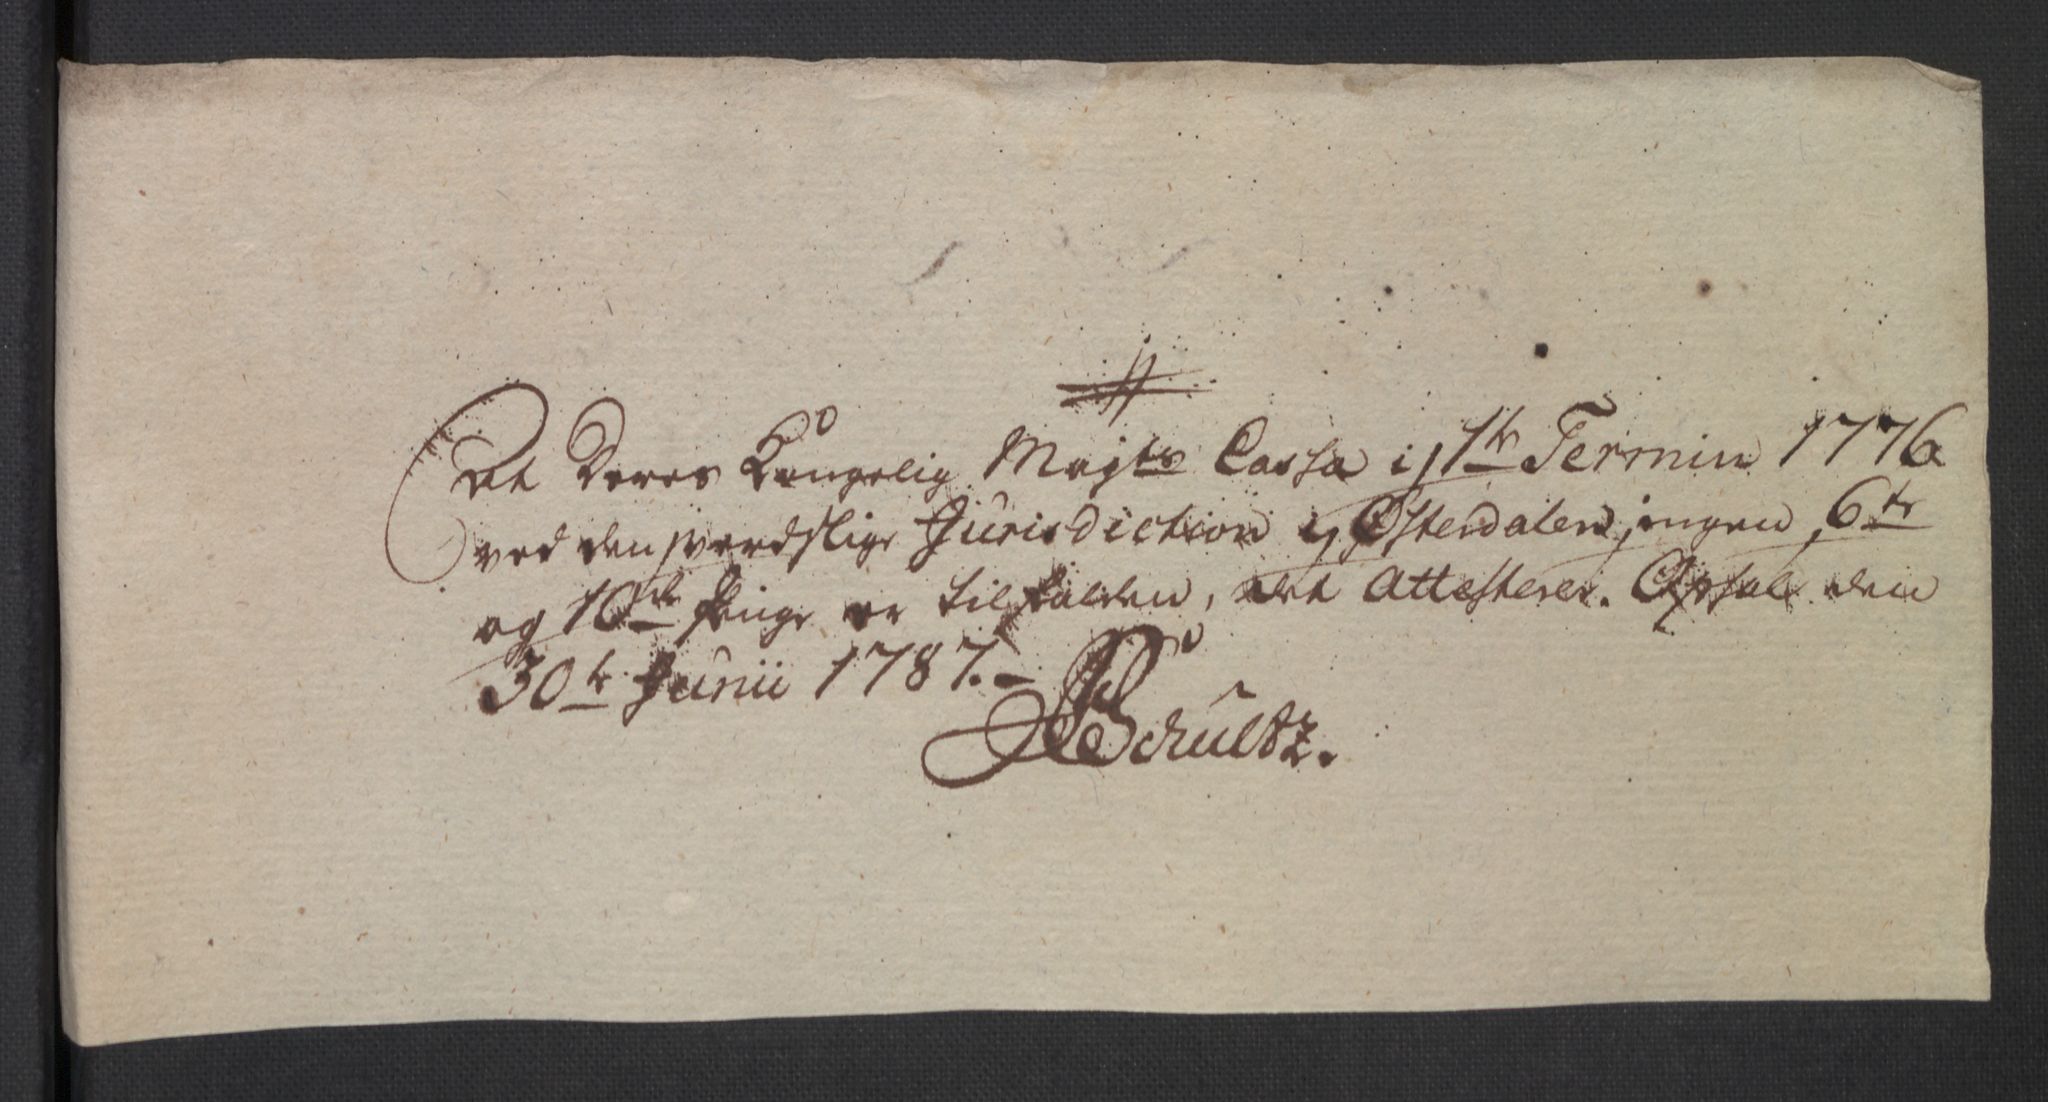 At Deres Kongelig Majts Cassa i 1te Termin 1776
ved den werdslige Jurisdiction i Østerdalen ingen 6te
og 10de Penge er tilfalden, det Attesterer. Opsal den
30te Junii 1787.
Schultz.